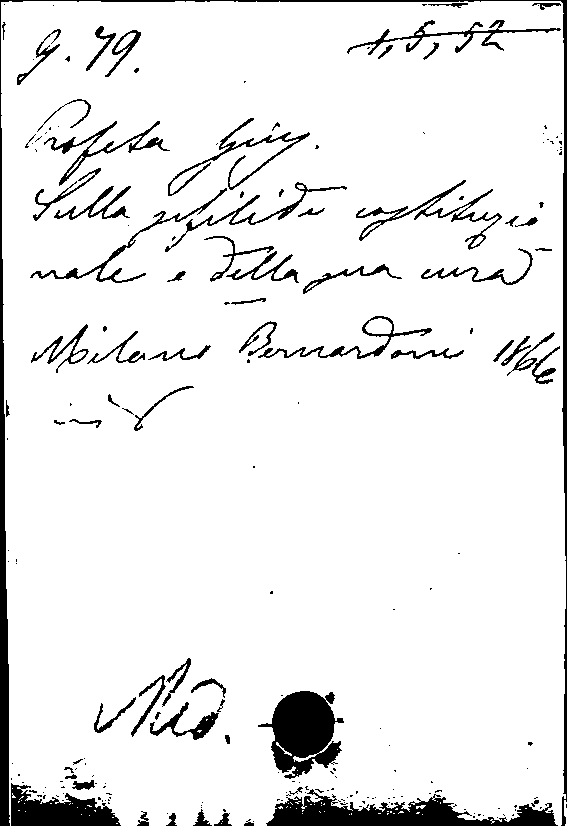 G. 79.
1, 5, 52
Profeta Giu.
Sulla sifilide costituzio
nale e della sua cura
Milano Bernardoni 1866
in 8
Med.